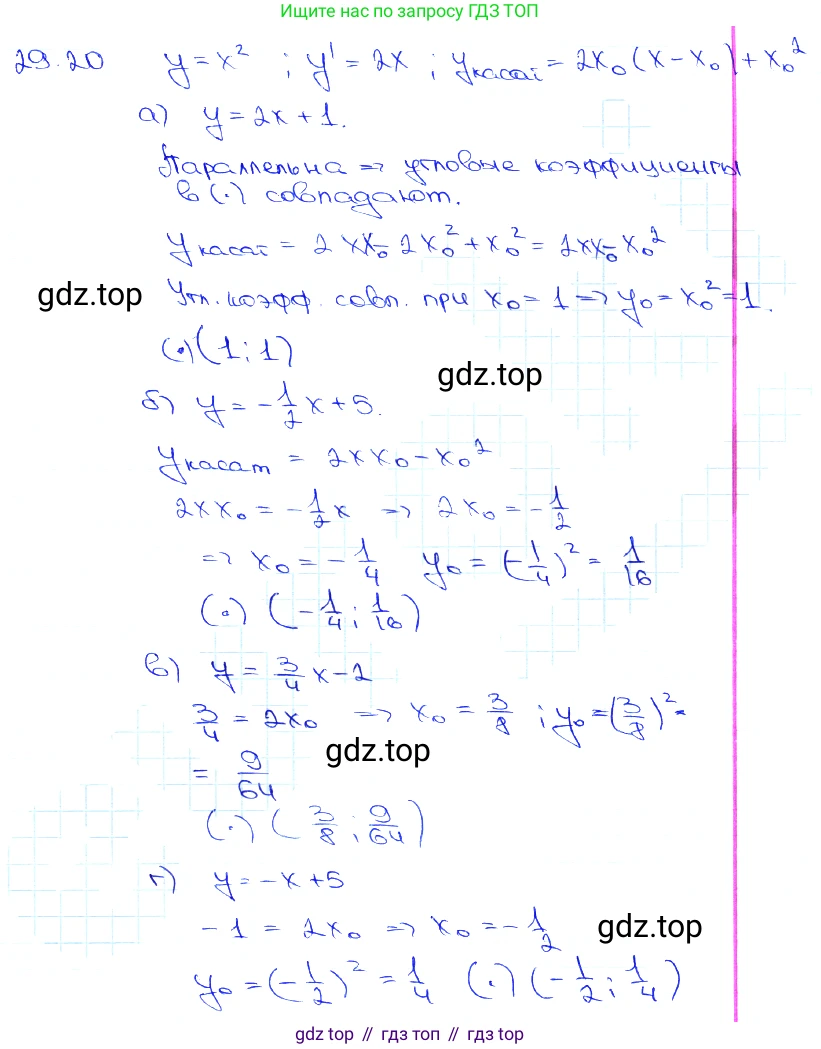 Ищите нас по запросу ГДЗ ТОП
29.20 y = x² ; y' = 2x ; y касат = 2x₀(x-x₀)+x₀²
а) y = 2x + 1.
Параллельна => угловые коэффициенты
в (.) совпадают.
y касат = 2xx₀ - 2x₀² + x₀² = 2xx₀ - x₀²
gdz.top Угл. коэфф. совп. при x₀ = 1 => y₀ = x₀² = 1.
(.) (1; 1)
gdz.top
б) y = -1/2 x + 5.
y касат = 2xx₀ - x₀²
2xx₀ = -1/2 x => 2x₀ = -1/2
=> x₀ = -1/4 y₀ = (-1/4)² = 1/16
(.) (-1/4 ; 1/16)
в) y = 3/4 x - 2
3/4 = 2x₀ => x₀ = 3/8 ; y₀ = (3/8)² =
= 9/64 gdz.top
(.) (3/8 ; 9/64)
г) y = -x + 5
-1 = 2x₀ => x₀ = -1/2 gdz.top
y₀ = (-1/2)² = 1/4 (.) (-1/2 ; 1/4)
gdz top // гдз топ // гдз top